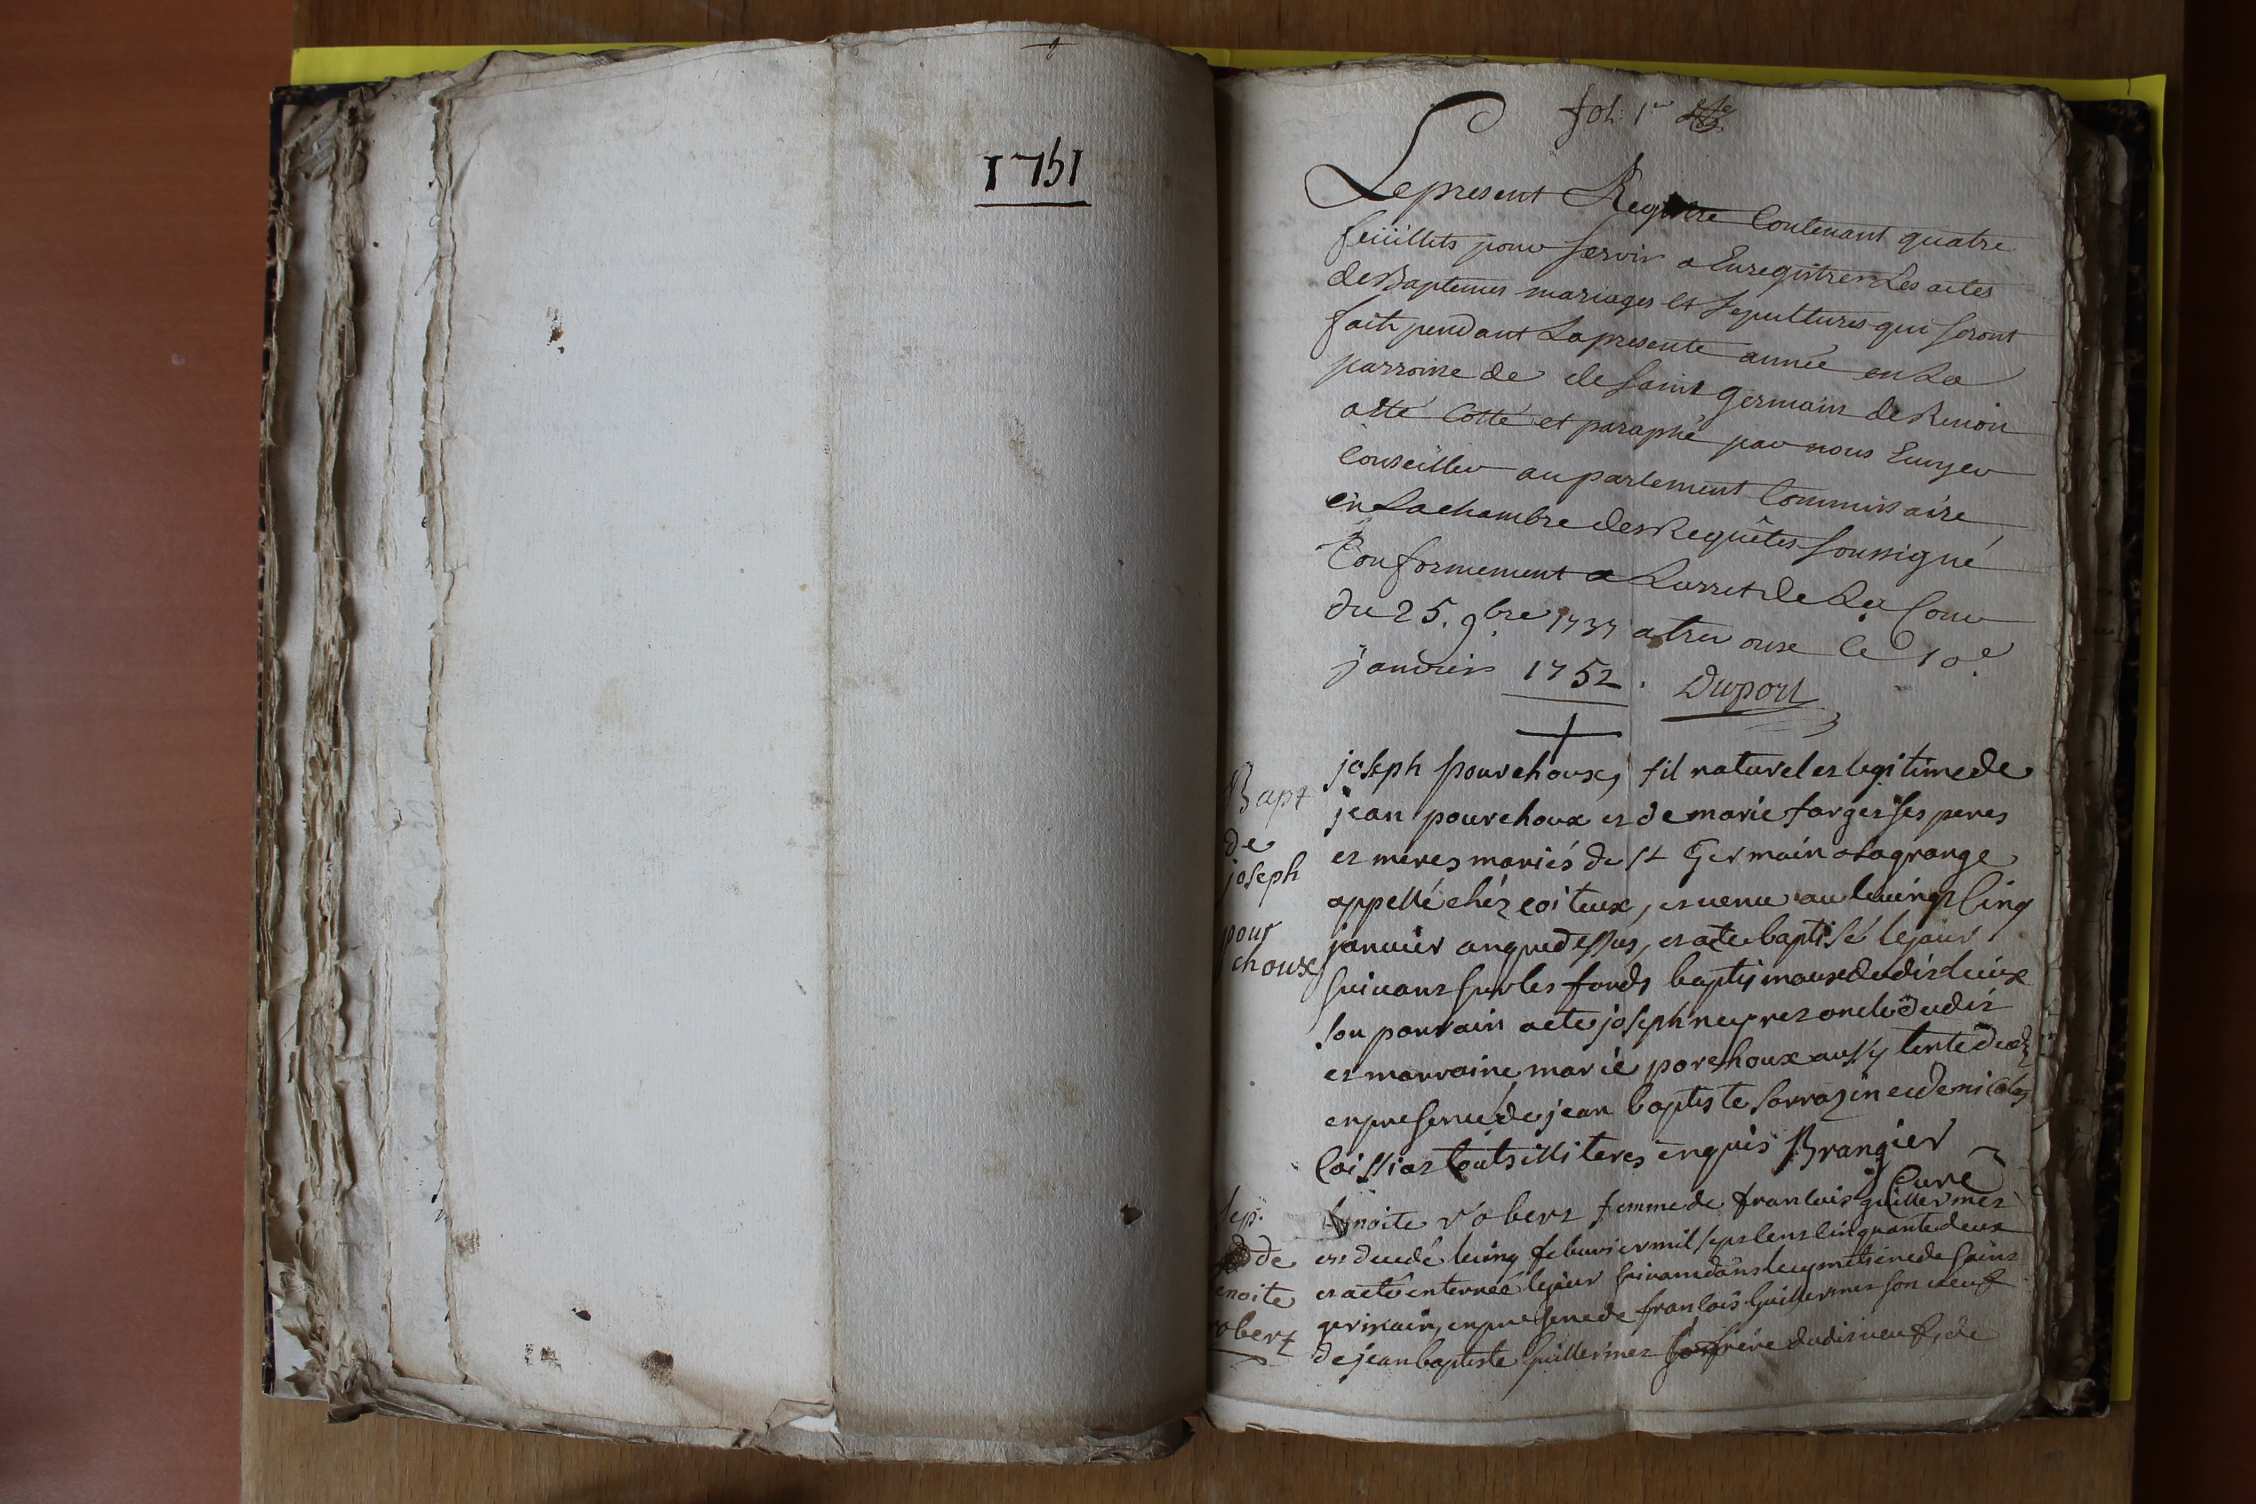 1751
fol. 1er
Le present Registre Contenant quatre
feüillets pour servir a Enregistrer Les actes
de Baptemes mariages et sepultures qui seront
fait pendant La presente année en La
parroisse de de saint germain de Renon
a été Cotté et paraphé par nous Ecuyer
Conseiller au parlement Commissaire
en La chambre des Requêtes soussigné
Conformement a L'arret de La Cour
du 25. 9bre 1737 a trevoux le 10e
janvier 1752. Duport
Bapt
de
joseph
pour
choux
joseph pourchoux, fil naturel et legitime de
jean pourchoux et de marie farget ses peres
et meres mariés de st Germain a lagrange
appellé chéz coiteux, est venu au le vingt Cinq
janvier an que dessus, et a ete baptisé le jour
suivant sur les fonds baptismaux du dit lieux
son parrain a ete joseph neyret oncle dudit
et marraine marie porchoux aussy tente dud
en presence de jean baptiste sarrazin et de nicolas
Caissiat touts illiteres enquis Brangier
Curé
Sep.
de
enoite
robert
benoite robert femme de francois guillermet
est decedé le cinq febuvrier mil sept cent cinquante deux
et a eté enterrée le jour suivant dans le cymetiere de saint
germain, en presence de francois Guillermet son veuf
de jean baptiste Guillermet frére dudit veuf, de